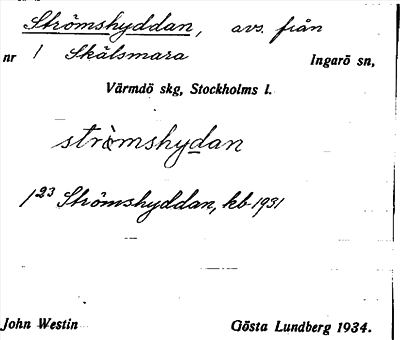 Strömshyddan, avs. från
nr 1 Skälsmara Ingarö sn,
Värmdö skg, Stockholms l.
strömshydan
1²³ Strömshyddan, kb 1931
John Westin Gösta Lundberg 1934.